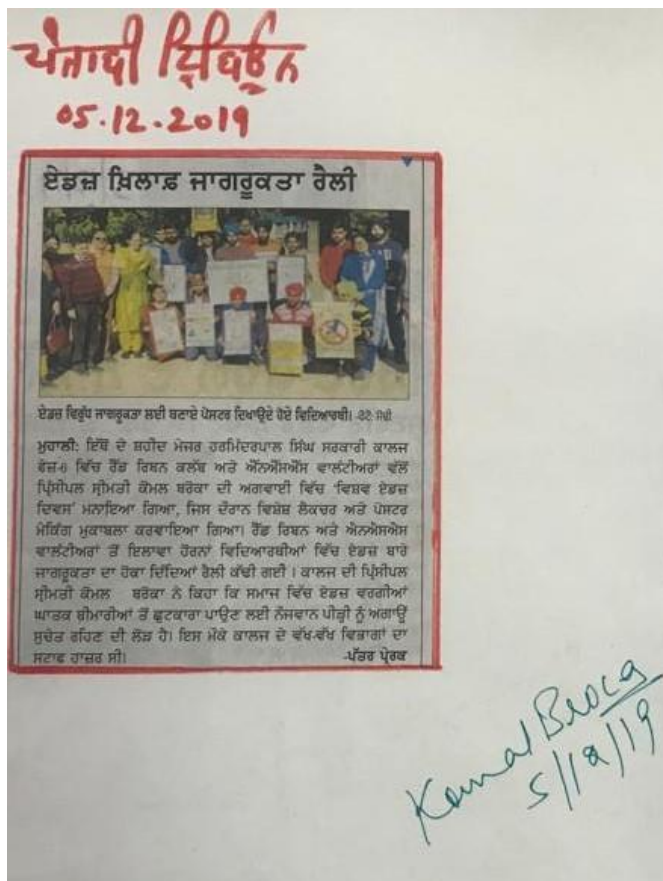 ਪੰਜਾਬੀ ਟ੍ਰਿਬਿਊਨ
05.12.2019
ਏਡਜ਼ ਖ਼ਿਲਾਫ਼ ਜਾਗਰੂਕਤਾ ਰੈਲੀ
ਏਡਜ਼ ਵਿਰੁੱਧ ਜਾਗਰੂਕਤਾ ਲਈ ਬਣਾਏ ਪੋਸਟਰ ਦਿਖਾਉਂਦੇ ਹੋਏ ਵਿਦਿਆਰਥੀ। -ਫੋਟੋ: ਸੋਢੀ
ਮੁਹਾਲੀ: ਇੱਥੋਂ ਦੇ ਸ਼ਹੀਦ ਮੇਜਰ ਹਰਮਿੰਦਰਪਾਲ ਸਿੰਘ ਸਰਕਾਰੀ ਕਾਲਜ
ਫੇਜ਼-6 ਵਿੱਚ ਰੈੱਡ ਰਿਬਨ ਕਲੱਬ ਅਤੇ ਐੱਨਐੱਸਐੱਸ ਵਾਲੰਟੀਅਰਾਂ ਵੱਲੋਂ
ਪ੍ਰਿੰਸੀਪਲ ਸ੍ਰੀਮਤੀ ਕੋਮਲ ਬਰੋਕਾ ਦੀ ਅਗਵਾਈ ਵਿੱਚ 'ਵਿਸ਼ਵ ਏਡਜ਼
ਦਿਵਸ' ਮਨਾਇਆ ਗਿਆ, ਜਿਸ ਦੌਰਾਨ ਵਿਸ਼ੇਸ਼ ਲੈਕਚਰ ਅਤੇ ਪੋਸਟਰ
ਮੇਕਿੰਗ ਮੁਕਾਬਲਾ ਕਰਵਾਇਆ ਗਿਆ। ਰੈੱਡ ਰਿਬਨ ਅਤੇ ਐਨਐਸਐਸ
ਵਾਲੰਟੀਅਰਾਂ ਤੋਂ ਇਲਾਵਾ ਹੋਰਨਾਂ ਵਿਦਿਆਰਥੀਆਂ ਵਿੱਚ ਏਡਜ਼ ਬਾਰੇ
ਜਾਗਰੂਕਤਾ ਦਾ ਹੋਕਾ ਦਿੰਦਿਆਂ ਰੈਲੀ ਕੱਢੀ ਗਈ । ਕਾਲਜ ਦੀ ਪ੍ਰਿੰਸੀਪਲ
ਸ੍ਰੀਮਤੀ ਕੋਮਲ ਬਰੋਕਾ ਨੇ ਕਿਹਾ ਕਿ ਸਮਾਜ ਵਿੱਚ ਏਡਜ਼ ਵਰਗੀਆਂ
ਘਾਤਕ ਬੀਮਾਰੀਆਂ ਤੋਂ ਛੁਟਕਾਰਾ ਪਾਉਣ ਲਈ ਨੌਜਵਾਨ ਪੀੜ੍ਹੀ ਨੂੰ ਅਗਾਊਂ
ਸੁਚੇਤ ਰਹਿਣ ਦੀ ਲੋੜ ਹੈ। ਇਸ ਮੌਕੇ ਕਾਲਜ ਦੇ ਵੱਖ-ਵੱਖ ਵਿਭਾਗਾਂ ਦਾ
ਸਟਾਫ ਹਾਜ਼ਰ ਸੀ। -ਪੱਤਰ ਪ੍ਰੇਰਕ
Komal Broca
5/12/19